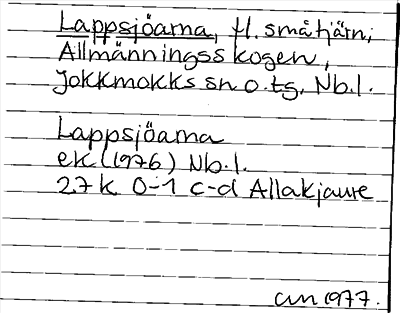 Lappsjöarna, fl. småtjärn,
Allmänningsskogen,
Jokkmokks sn o. tg, Nb.l.
Lappsjöarna
ek (1976) Nb.l.
27 K 0-1 c-d Allakjaure
1977.